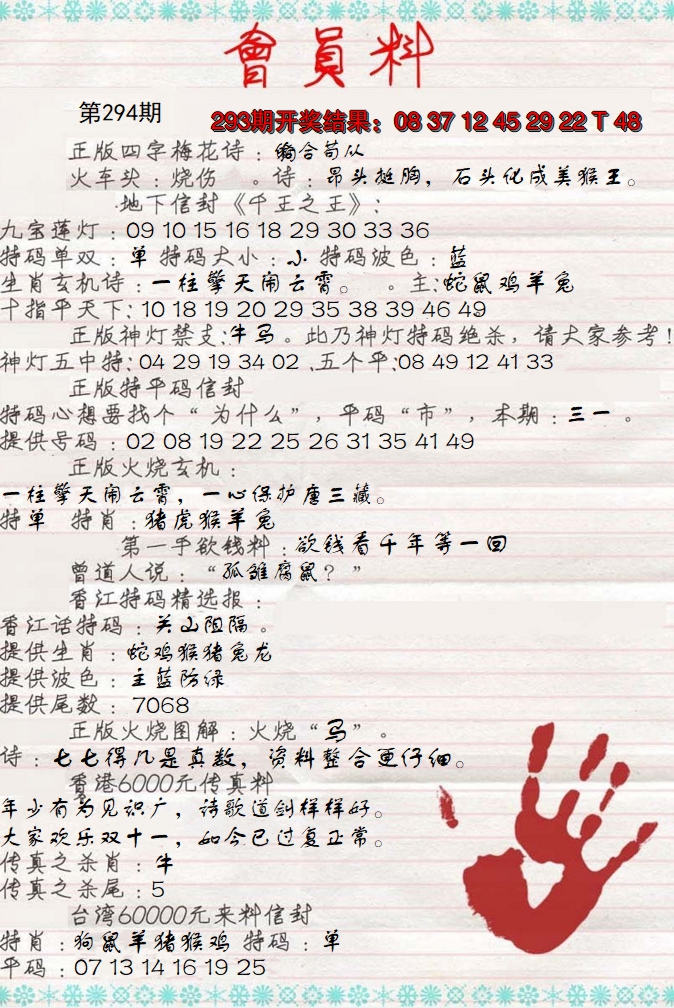 會員料
第294期
293期开奖结果：08 37 12 45 29 22 T 48
正版四字梅花诗：蝇合苟从
火车头：烧伤 。诗：昂头挺胸，石头化成美猴王。
地下信封《千王之王》：
九宝莲灯：09 10 15 16 18 29 30 33 36
特码单双：单 特码大小：小 特码波色：蓝
生肖玄机诗：一柱擎天闹云霄。 。主:蛇鼠鸡羊兔
十指平天下: 10 18 19 20 29 35 38 39 46 49
正版神灯禁支:牛马。此乃神灯特码绝杀，请大家参考！
神灯五中特:04 29 19 34 02 .五个平:08 49 12 41 33
正版特平码信封
特码心想要找个“为什么”，平码“市”，本期：三一 。
提供号码：02 08 19 22 25 26 31 35 41 49
正版火烧玄机：
一柱擎天闹云霄，一心保护唐三藏。
特单 特肖：猪虎猴羊兔
第一手欲钱料：欲钱看千年等一回
曾道人说：“孤雏腐鼠？”
香江特码精选报：
香江话特码：关山阻隔。
提供生肖：蛇鸡猴猪兔龙
提供波色：主蓝防绿
提供尾数：7068
正版火烧图解：火烧“马”。
诗：七七得几是真数，资料整合更仔细。
香港6000元传真料
年少有为见识广，诗歌道剑样样好。
大家欢乐双十一，如今已过复正常。
传真之杀肖：牛
传真之杀尾：5
台湾60000元来料信封
特肖：狗鼠羊猪猴鸡 特码：单
平码：07 13 14 16 19 25